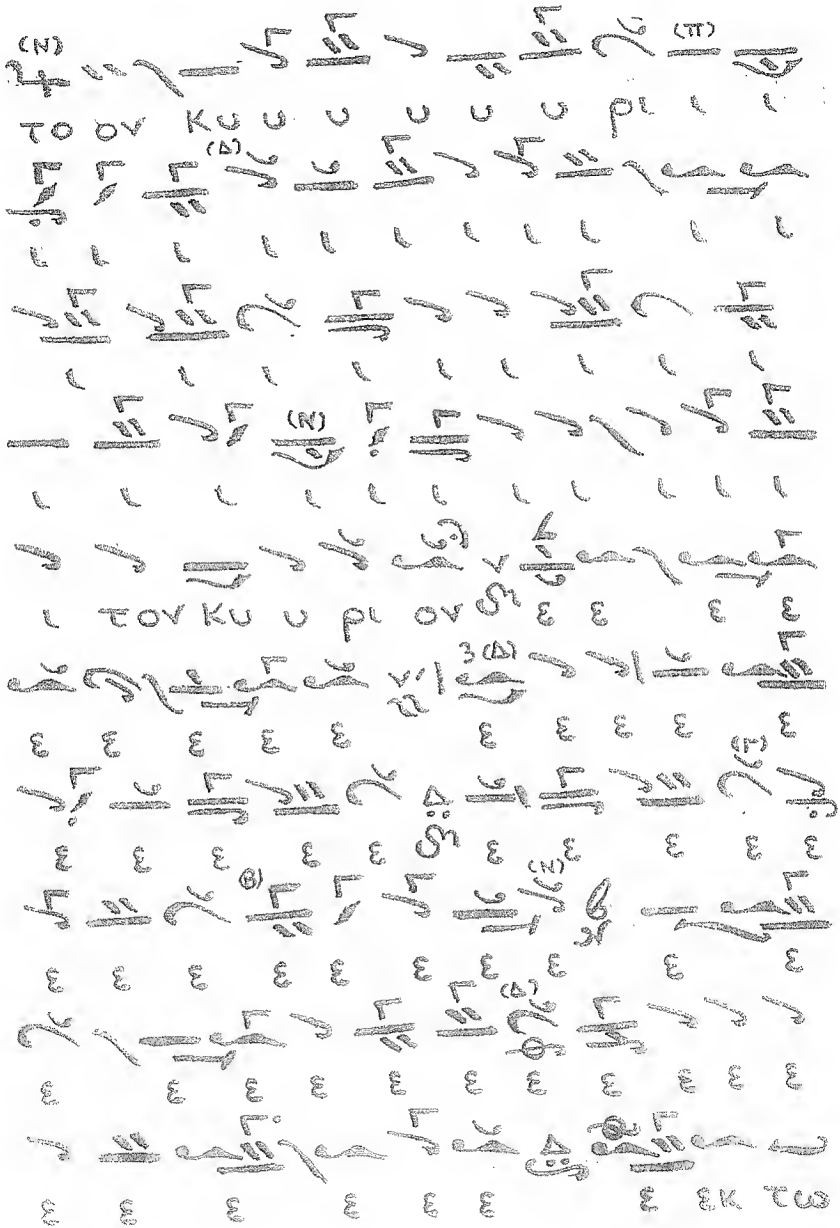 (Ν) (Π)
το ον Κυ υ υ υ υ υ ρι ι ι
(Δ)
ι ι ι ι ι ι ι ι ι ι ι
ι ι ι ι ι ι ι ι ι
(Ν)
ι ι ι ι ι ι ι ι ι ι ι
ι τον Κυ υ ρι ον ε ε ε ε
(Δ)
ε ε ε ε ε ε ε ε ε ε
Δ (Γ)
ε ε ε ε ε ε ε ε ε ε
(Β) (Ζ)
ε ε ε ε ε ε ε ε ε ε
(Δ)
ε ε ε ε ε ε ε ε ε ε ε
Δ
ε ε ε ε ε ε ε εκ τω